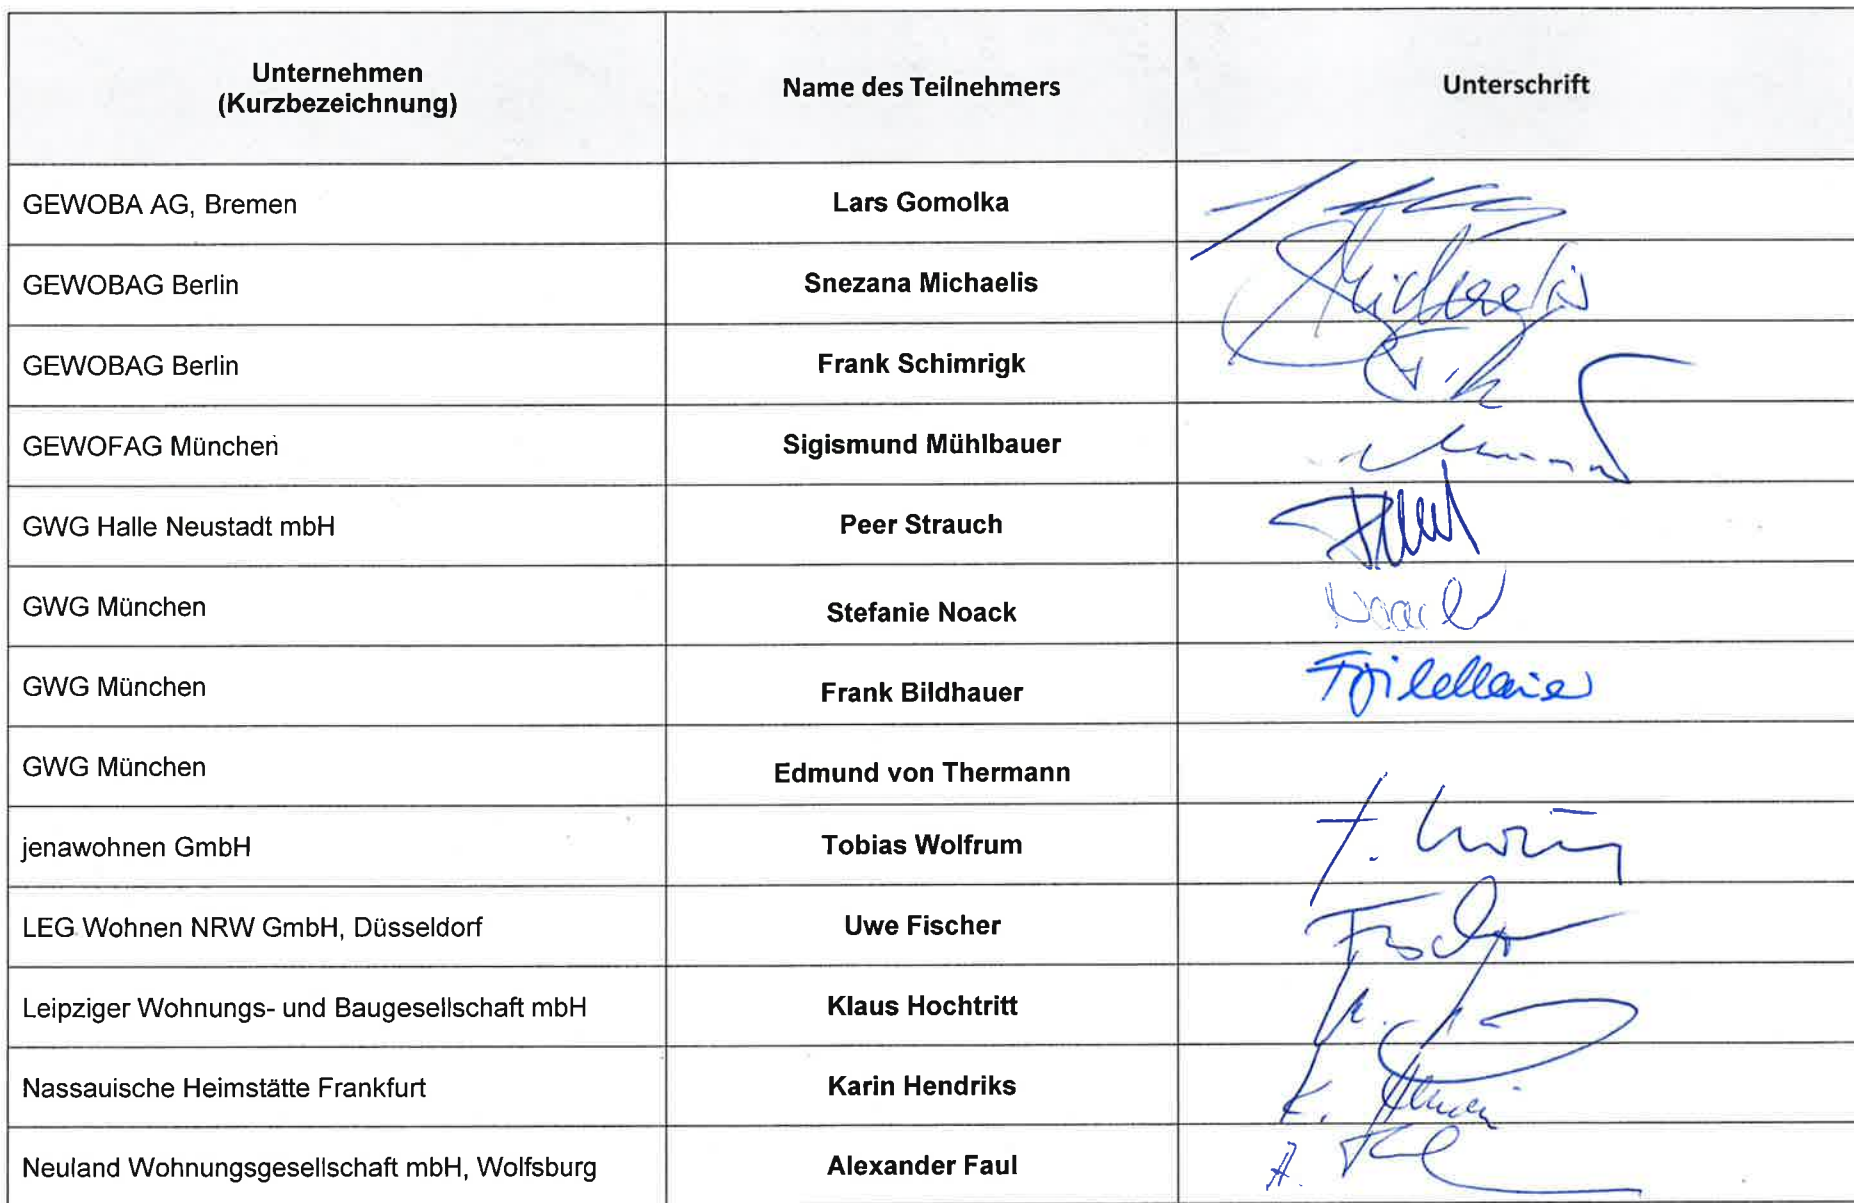 Unternehmen
(Kurzbezeichnung)
Name des Teilnehmers
Unterschrift
GEWOBA AG, Bremen Lars Gomolka
GEWOBAG Berlin Snezana Michaelis Michaelis
GEWOBAG Berlin Frank Schimrigk
GEWOFAG München Sigismund Mühlbauer
GWG Halle Neustadt mbH Peer Strauch
GWG München Stefanie Noack Noack
GWG München Frank Bildhauer
GWG München Edmund von Thermann
jenawohnen GmbH Tobias Wolfrum
LEG Wohnen NRW GmbH, Düsseldorf Uwe Fischer Fischer
Leipziger Wohnungs- und Baugesellschaft mbH Klaus Hochtritt
Nassauische Heimstätte Frankfurt Karin Hendriks
Neuland Wohnungsgesellschaft mbH, Wolfsburg Alexander Faul